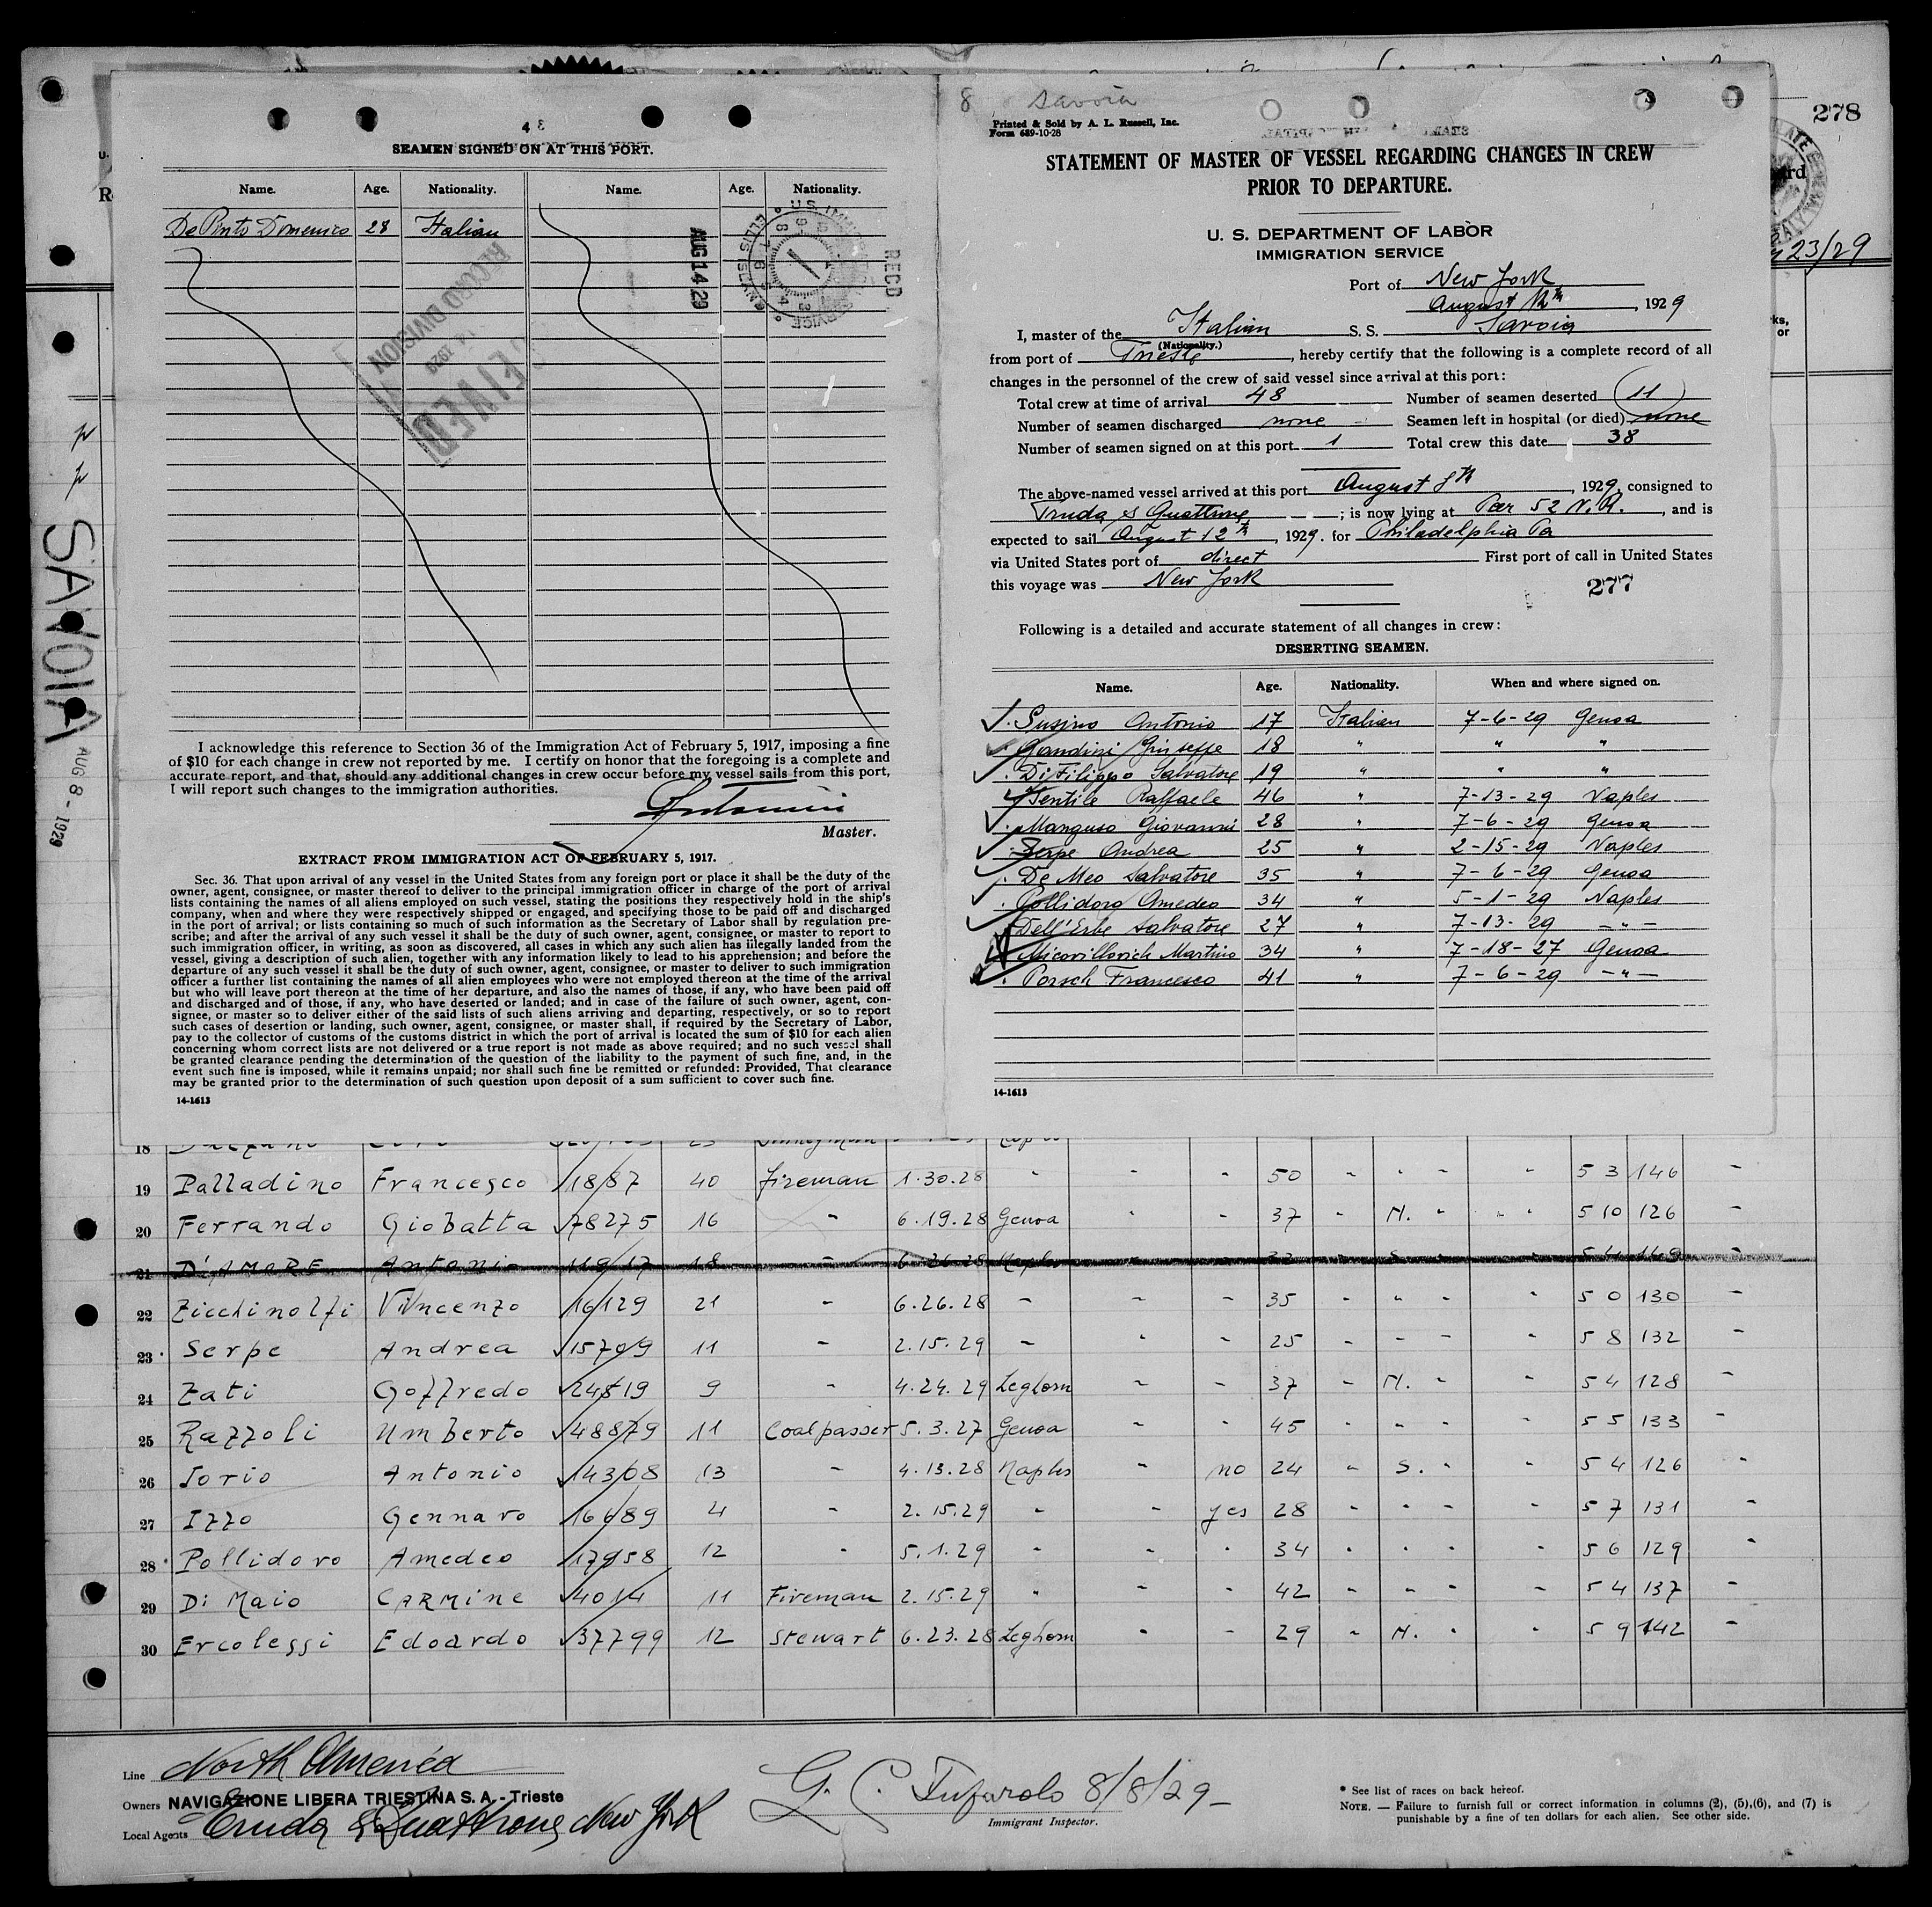 278
23/29
SAVOIA
AUG 8 - 1929
48
SEAMEN SIGNED ON AT THIS PORT.
Name. Age. Nationality. Name. Age. Nationality.
De Pinto Domenico 28 Italian
AUG 14 29
RECD
U. S. IMMIGRATION SERVICE ELLIS ISLAND, N.Y.
RECORD DIVISION
RECEIVED
I acknowledge this reference to Section 36 of the Immigration Act of February 5, 1917, imposing a fine
of $10 for each change in crew not reported by me. I certify on honor that the foregoing is a complete and
accurate report, and that, should any additional changes in crew occur before my vessel sails from this port,
I will report such changes to the immigration authorities.
Master.
EXTRACT FROM IMMIGRATION ACT OF FEBRUARY 5, 1917.
Sec. 36. That upon arrival of any vessel in the United States from any foreign port or place it shall be the duty of the
owner, agent, consignee, or master thereof to deliver to the principal immigration officer in charge of the port of arrival
lists containing the names of all aliens employed on such vessel, stating the positions they respectively hold in the ship's
company, when and where they were respectively shipped or engaged, and specifying those to be paid off and discharged
in the port of arrival; or lists containing so much of such information as the Secretary of Labor shall by regulation pre-
scribe; and after the arrival of any such vessel it shall be the duty of such owner, agent, consignee, or master to report to
such immigration officer, in writing, as soon as discovered, all cases in which any such alien has illegally landed from the
vessel, giving a description of such alien, together with any information likely to lead to his apprehension; and before the
departure of any such vessel it shall be the duty of such owner, agent, consignee, or master to deliver to such immigration
officer a further list containing the names of all alien employees who were not employed thereon at the time of the arrival
but who will leave port thereon at the time of her departure, and also the names of those, if any, who have been paid off
and discharged and of those, if any, who have deserted or landed; and in case of the failure of such owner, agent, con-
signee, or master so to deliver either of the said lists of such aliens arriving and departing, respectively, or so to report
such cases of desertion or landing, such owner, agent, consignee, or master shall, if required by the Secretary of Labor,
pay to the collector of customs of the customs district in which the port of arrival is located the sum of $10 for each alien
concerning whom correct lists are not delivered or a true report is not made as above required; and no such vessel shall
be granted clearance pending the determination of the question of the liability to the payment of such fine, and, in the
event such fine is imposed, while it remains unpaid; nor shall such fine be remitted or refunded: Provided, That clearance
may be granted prior to the determination of such question upon deposit of a sum sufficient to cover such fine.
14-1613
8 Savoia
Printed & Sold by A. L. Russell, Inc.
Form 689-10-28
STATEMENT OF MASTER OF VESSEL REGARDING CHANGES IN CREW
PRIOR TO DEPARTURE.
U. S. DEPARTMENT OF LABOR
IMMIGRATION SERVICE
Port of New York
August 12th, 1929
I, master of the Italian S. S. Savoia
(Nationality.)
from port of Trieste, hereby certify that the following is a complete record of all
changes in the personnel of the crew of said vessel since arrival at this port:
Total crew at time of arrival 48 Number of seamen deserted 11
Number of seamen discharged none Seamen left in hospital (or died) none
Number of seamen signed on at this port 1 Total crew this date 38
The above-named vessel arrived at this port August 8th, 1929, consigned to
Truda & Quattrone; is now lying at Pier 52 N.R., and is
expected to sail August 12th, 1929. for Philadelphia Pa
via United States port of direct First port of call in United States
this voyage was New York
277
Following is a detailed and accurate statement of all changes in crew:
DESERTING SEAMEN.
Name. Age. Nationality. When and where signed on.
Susino Antonio 17 Italian 7-6-29 Genoa
Gandini Giuseppe 18 " " "
Di Filippo Salvatore 19 " " "
Gentile Raffaele 46 " 7-13-29 Naples
Manguso Giovanni 28 " 7-6-29 Genoa
Serpe Andrea 25 " 2-15-29 Naples
De Meo Salvatore 35 " 7-6-29 Genoa
Pollidoro Amedeo 34 " 5-1-29 Naples
Dell'Erbe Salvatore 27 " 7-13-29 -"-
Micovillovich Martino 34 " 7-18-27 Genoa
Porsch Francesco 41 " 7-6-29 -"-
14-1613
18
19 Palladino Francesco 18/87 40 fireman 1.30.28 " " " 50 " " " " 5 3 146 -
20 Ferrando Giobatta 78275 16 " 6.19.28 Genoa " " 37 " M. " " 5 10 126 -
21 D'AMORE Antonio 119/17 18 " 6.26.28 Naples
22 Zicchinolfi Vincenzo 16129 21 " 6.26.28 " " " 35 " " " " 5 0 130 -
23 Serpe Andrea 15709 11 " 2.15.29 " " " 25 " " " " 5 8 132 -
24 Zati Goffredo 24819 9 " 4.24.29 Leghorn " " 37 " M. " " 5 4 128 -
25 Razzoli Umberto 48879 11 Coalpasser 5.3.27 Genoa " " 45 " " " " 5 5 133 -
26 Iorio Antonio 14308 13 " 4.13.28 Naples " no 24 " S. " " 5 4 126 -
27 Izzo Gennaro 16689 4 " 2.15.29 " " yes 28 " " " " 5 7 131 -
28 Pollidoro Amedeo 17958 12 " 5.1.29 " " " 34 " " " " 5 6 129 -
29 Di Maio CARMine 4014 11 Fireman 2.15.29 " " " 42 " " " " 5 4 137 -
30 Ercolessi Edoardo 37799 12 Stewart 6.23.28 Leghorn " " 29 " M. " " 5 9 142 -
Line North America
Owners NAVIGAZIONE LIBERA TRIESTINA S. A. - Trieste
Local Agents Truda & Quattrone New York
G. C. Tufarolo 8/8/29
Immigrant Inspector.
* See list of races on back hereof.
NOTE. — Failure to furnish full or correct information in columns (2), (5),(6), and (7) is
punishable by a fine of ten dollars for each alien. See other side.